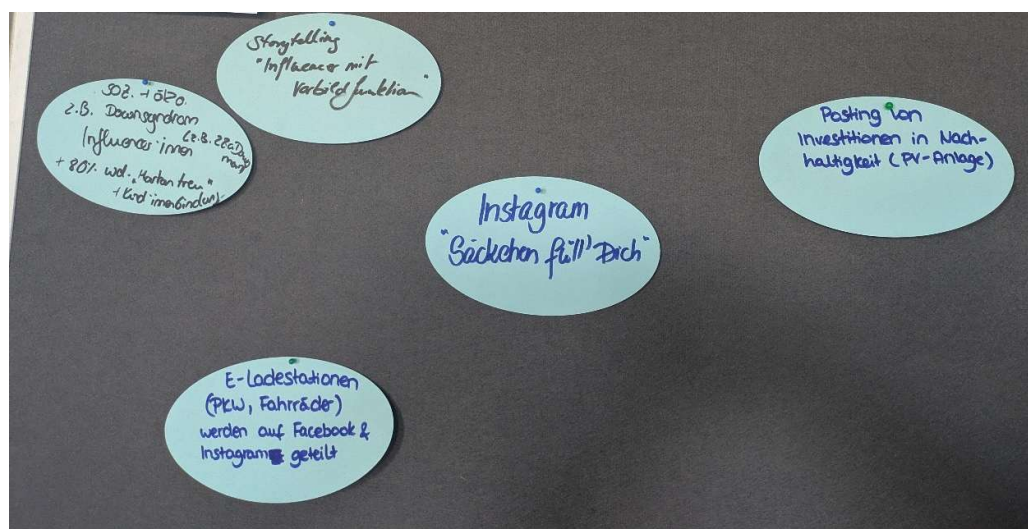 Storytelling
"Influencer mit
Vorbildfunktion"
soz. + öko.
z.B. Downsyndrom
Influencer:innen
+ 80% wbl. "Markentreu"
+ Kund:innenbindung
Posting von
Investitionen in Nach-
haltigkeit (PV-Anlage)
Instagram
"Säckchen füll' Dich"
E-Ladestationen
(PKW, Fahrräder)
werden auf Facebook &
Instagram geteilt